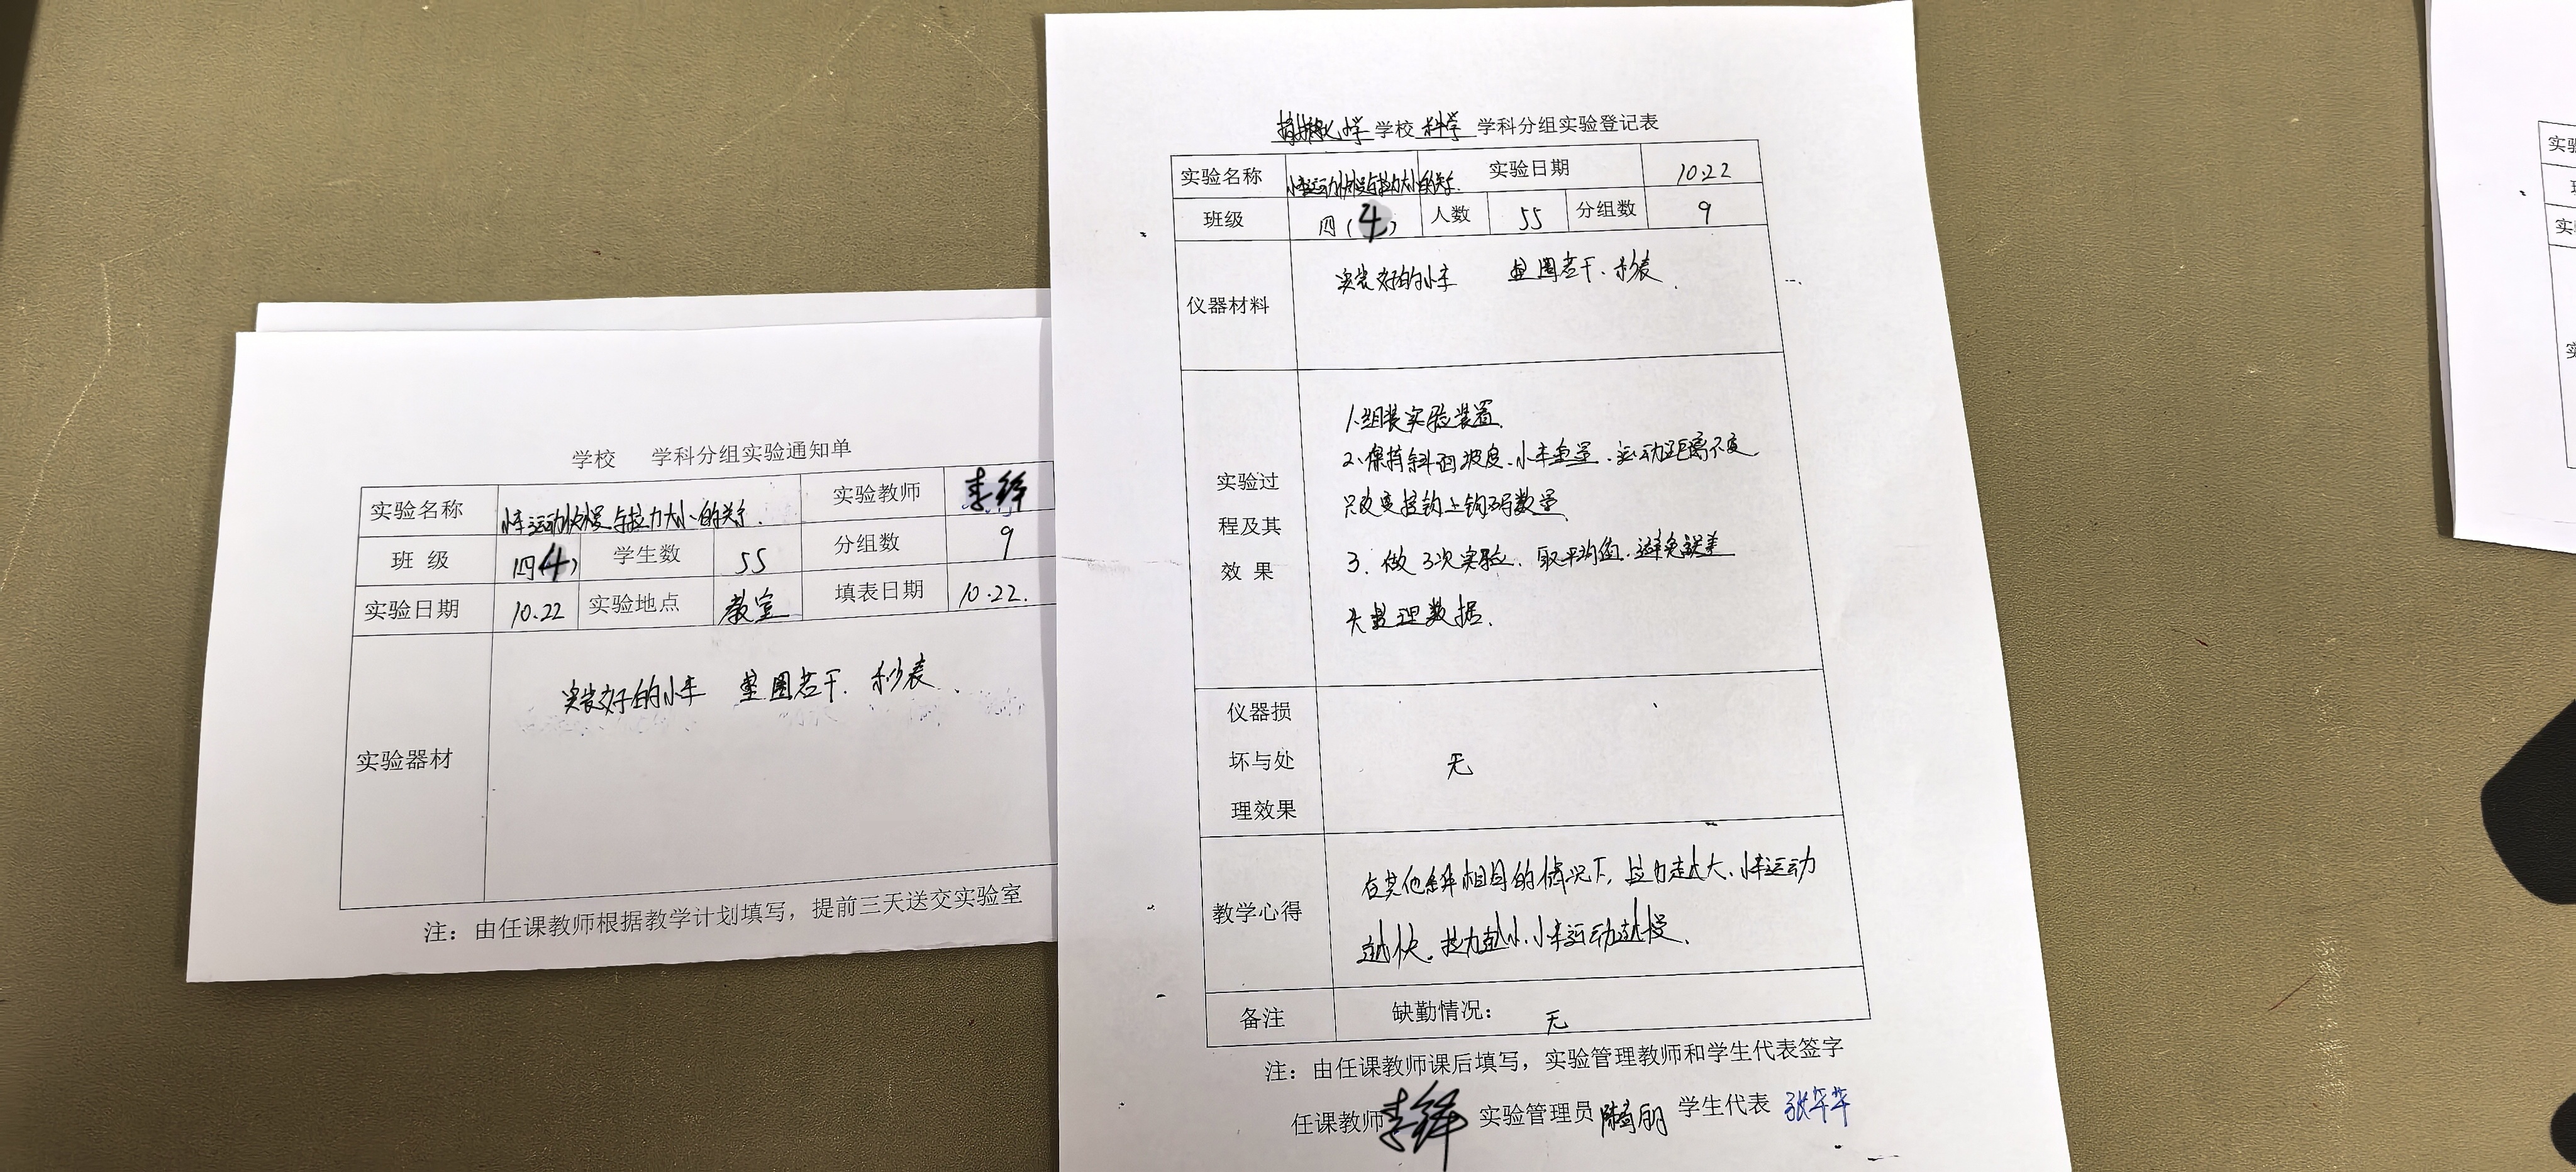 学校 学科分组实验通知单
实验名称 小车运动快慢与拉力大小的关系. 实验教师 李
班 级 四(4) 学生数 55 分组数 9
实验日期 10.22 实验地点 教室 填表日期 10.22.
实验器材 安装好的小车 垫圈若干、秒表.
注：由任课教师根据教学计划填写，提前三天送交实验室
小学 学校 科学 学科分组实验登记表
实验名称 小车运动快慢与拉力大小的关系. 实验日期 10.22
班级 四(4) 人数 55 分组数 9
仪器材料 安装好的小车 垫圈若干、秒表.
实验过
程及其
效 果
1.组装实验装置.
2.保持斜面坡度、小车重量、运动距离不变
只改变挂钩上钩码数量.
3. 做3次实验、取平均值、避免误差
整理数据.
仪器损
坏与处
理效果
无
教学心得
在其他条件相同的情况下，拉力越大、小车运动
越快。拉力越小、小车运动越慢.
备注 缺勤情况： 无
注：由任课教师课后填写，实验管理教师和学生代表签字
任课教师 李 实验管理员 丽 学生代表 张
实
实